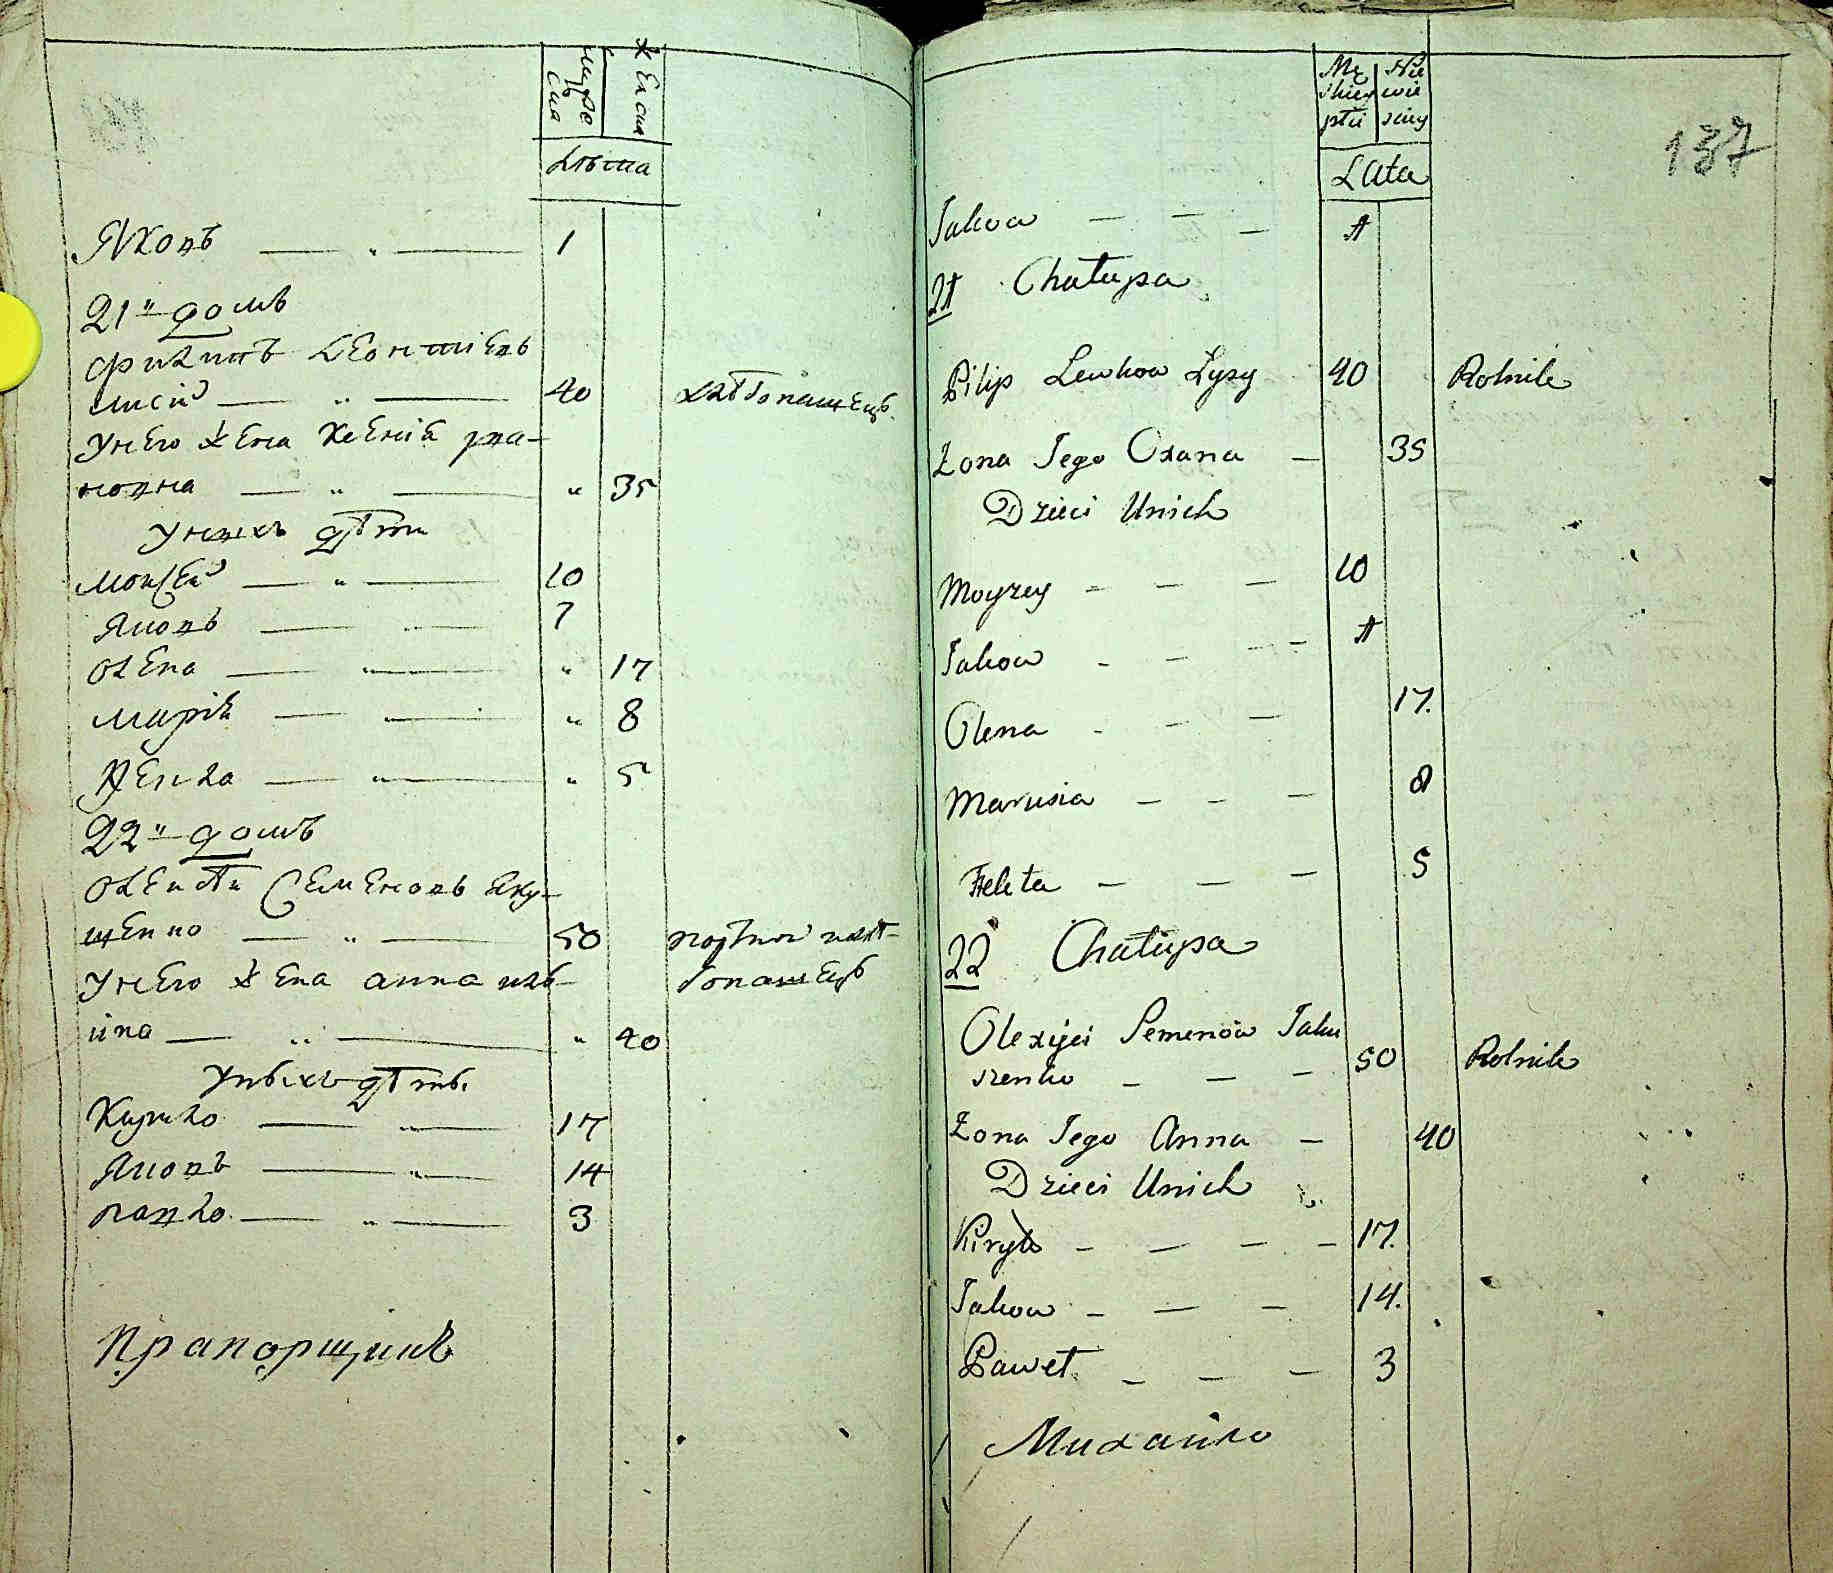 мужеска
женска
лѣта
Яковъ — „ — 1
21й домъ
Филипъ Леонтіевъ
лисій — „ — 40 хлѣбопашецъ
у него жена Ксенія ива-
новна — „ — „ 35
у нихъ дѣти
Моисей — „ — 10
Яковъ — „ — 7
Олена — „ — „ 17
Марія — „ — „ 8
— „ — „ 5
22й домъ
Олексѣй Семеновъ Яку-
шенко — „ — 50 портной хлѣ-
бопашецъ
у него жена анна иль-
ина — „ — „ 40
у ныхъ дѣты
Кирило — „ — 17
Яковъ — „ — 14
павло — „ — 3
Прапорщикъ
137
Mę
skiey
płci
Nie
wie
sciey
Lata
Jakow — — — 1
21 Chałupa
Pilip Lewkow Łysy 40 Rolnik
Zona Jego Oxana — 35
Dzieci Unich
Moyzey — — — 10
Jakow — — — 7
Olena — — — 17.
Marusia — — — 8
— — — 5
22 Chałupa
Olexiei Semenow Jaku
szenko — — — 50 Rolnik
Zona Jego Anna — 40
Dzieci Unich
Kiryło — — — — 17.
Jakow — — — 14.
Paweł — — — 3
Михайло